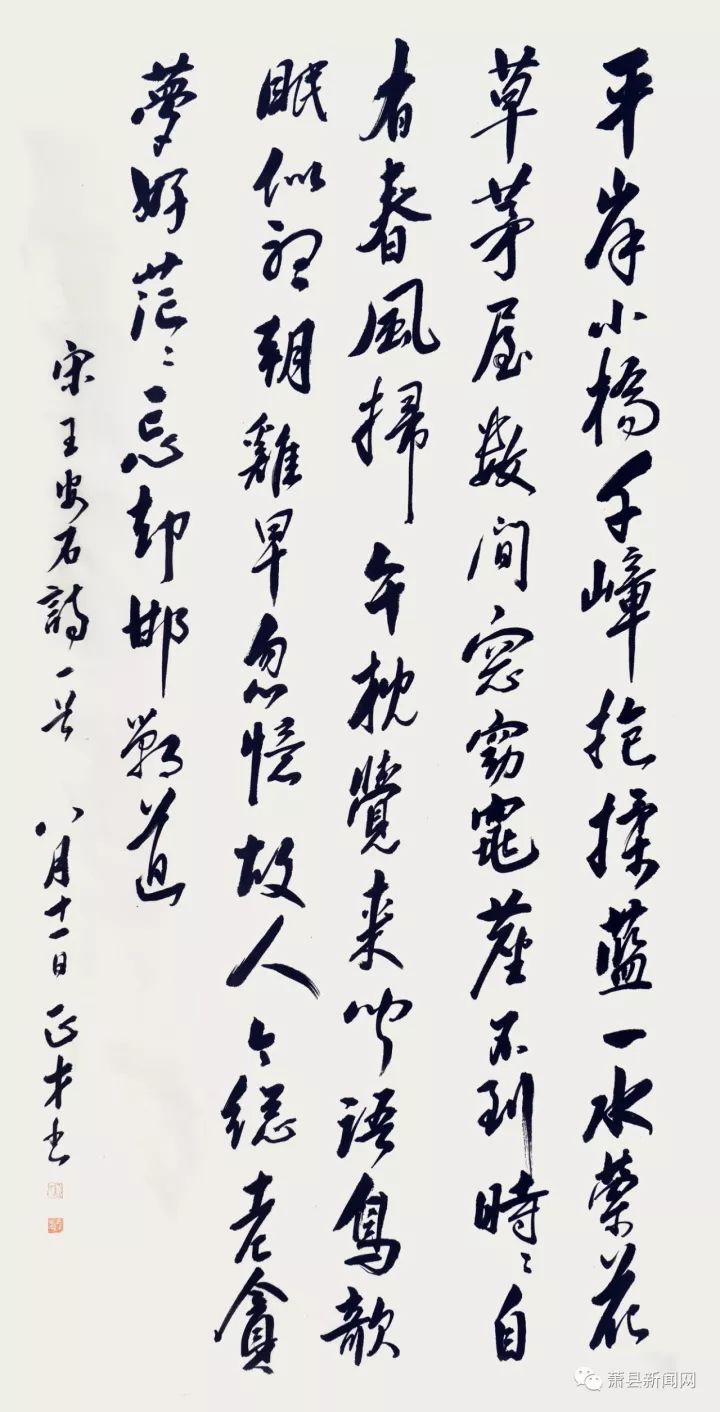 平岸小橋千嶂抱揉藍一水縈花
草茅屋數間窓窈窕塵不到時〻自
有春風掃午枕覺来聞語鳥欹
眠似聽朝雞早忽憶故人今總老貪
夢好茫〻忘却邯鄲道
宋王安石詩一首 八月十一日 正才书
萧县新闻网